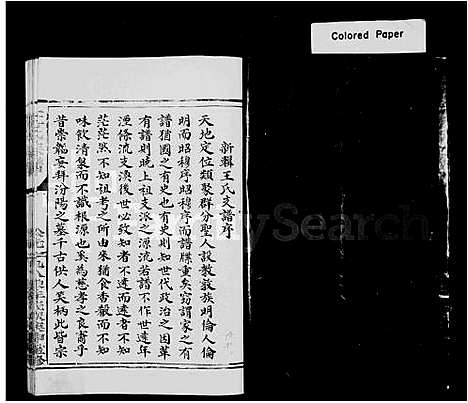 Colored Paper
新輯王氏支譜序
天地定位類聚群分聖人設教敦族明倫人倫
明而昭穆序昭穆序而譜牒重矣竊謂家之有
譜猶國之有史也有史則知世代政治之因革
有譜則曉上祖支派之源流若譜不作世遠年
湮條流支渙後世必致知者不透而透者不知
茫茫然不知祖考之所由來猶食香穀而不知
味飲清泉而不識根源也奚為慈孝之良裔乎
昔崇韜妄拜汾陽之墓千古供人笑柄此皆宗